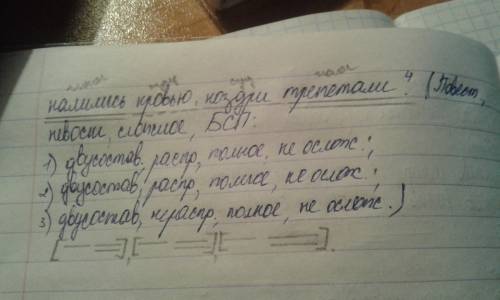 глаг. сущ. сущ. глаг.
налились кровью, ноздри трепетали". (Повест,
невоскл, сложное, БСП:
1) двусостав, распр, полное, не ослож.;
2) двусостав, распр, полное, не ослож.;
3) двусостав, нераспр, полное, не ослож.)
[— =], [— =], [— =].